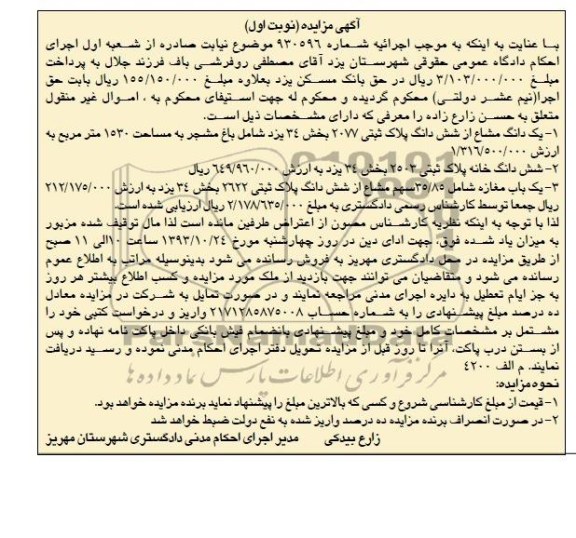 آگهی مزایده (نوبت اول)
با عنایت به اینکه به موجب اجرائیه شماره ۹۳۰۵۹۶ موضوع نیابت صادره از شعبه اول اجرای
احکام دادگاه عمومی حقوقی شهرستان یزد آقای مصطفی روفرشی باف فرزند جلال به پرداخت
مبلغ ۳/۱۰۳/۰۰۰/۰۰۰ ریال در حق بانک مسکن یزد بعلاوه مبلغ ۱۵۵/۱۵۰/۰۰۰ ریال بابت حق
اجرا(نیم عشر دولتی) محکوم گردیده و محکوم له جهت استیفای محکوم به ، اموال غیر منقول
متعلق به حسن زارع زاده را معرفی که دارای مشخصات ذیل است.
۱- یک دانگ مشاع از شش دانگ پلاک ثبتی ۲۰۷۷ بخش ۳۴ یزد شامل باغ مشجر به مساحت ۱۵۳۰ متر مربع به
ارزش ۱/۳۱۶/۵۰۰/۰۰۰
۲- شش دانگ خانه پلاک ثبتی ۲۵۰۳ بخش ۳۴ یزد به ارزش ۶۴۹/۹۶۰/۰۰۰ ریال
۳- یک باب مغازه شامل ۳۵/۸۵ سهم مشاع از شش دانگ پلاک ثبتی ۲۶۲۲ بخش ۳۴ یزد به ارزش ۲۱۲/۱۷۵/۰۰۰
ریال جمعا توسط کارشناس رسمی دادگستری به مبلغ ۲/۱۷۸/۶۳۵/۰۰۰ ریال ارزیابی شده است.
لذا با توجه به اینکه نظریه کارشناس مصون از اعتراض طرفین مانده است لذا مال توقیف شده مزبور
به میزان یاد شده فوق، جهت ادای دین در روز چهارشنبه مورخ ۱۳۹۳/۱۰/۲۴ ساعت ۱۰الی ۱۱ صبح
از طریق مزایده در محل دادگستری مهریز به فروش رسانده می شود بدینوسیله مراتب به اطلاع عموم
رسانده می شود و متقاضیان می توانند جهت بازدید از ملک مورد مزایده و کسب اطلاع بیشتر هر روز
به جز ایام تعطیل به دایره اجرای مدنی مراجعه نمایند و در صورت تمایل به شرکت در مزایده معادل
ده درصد مبلغ پیشنهادی را به شماره حساب ۲۱۷۱۲۸۵۸۷۵۰۰۸ واریز و درخواست کتبی خود را
مشتمل بر مشخصات کامل خود و مبلغ پیشنهادی بانضمام فیش بانکی داخل پاکت نامه نهاده و پس
از بستن درب پاکت، آنرا تا روز قبل از مزایده تحویل دفتر اجرای احکام مدنی نموده و رسید دریافت
نمایند. م الف ۴۲۰۰
نحوه مزایده:
۱- قیمت از مبلغ کارشناسی شروع و کسی که بالاترین مبلغ را پیشنهاد نماید برنده مزایده خواهد بود.
۲- در صورت انصراف برنده مزایده ده درصد واریز شده به نفع دولت ضبط خواهد شد
زارع بیدکی مدیر اجرای احکام مدنی دادگستری شهرستان مهریز
ParsNamadData
مرکز فرآوری اطلاعات پارس نماد داده ها